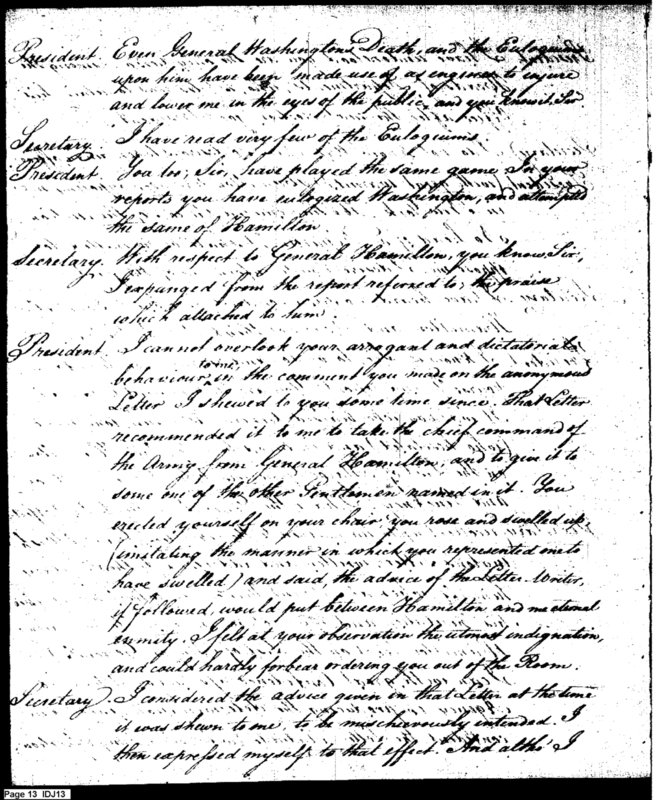 President Even General Washingtons Death, and the Eulogiums
upon him have been made use of as engines to injure
and lower me in the eyes of the public, and you know it, Sir
Secretary. I have read very few of the Eulogiums
President You too, Sir, have played the same game. In your
reports you have eulogized Washington, and attempted
the same of Hamilton
Secretary. With respect to General Hamilton, you know, Sir,
I expunged from the report referred to, the praise
which attached to him.
President I cannot overlook your arrogant and dictatorial
behaviour to me, in the comment you made on the anonymous
Letter I shewed to you some time since. That Letter
recommended it to me to take the chief command of
the Army from General Hamilton, and to give it to
some one of the other Gentlemen named in it. You
erected yourself on your chair, you rose and swelled up,
(imitating the manner in which you represented me to
have swelled) and said, the advice of the Letter Writer,
if followed, would put between Hamilton and me eternal
enmity. I felt at your observation the utmost indignation,
and could hardly forbear ordering you out of the Room.
Secretary. I considered the advice given in that Letter at the time
it was shewn to me, to be mischievously intended. I
then expressed myself to that effect. And altho' I
Page 13 IDJ13